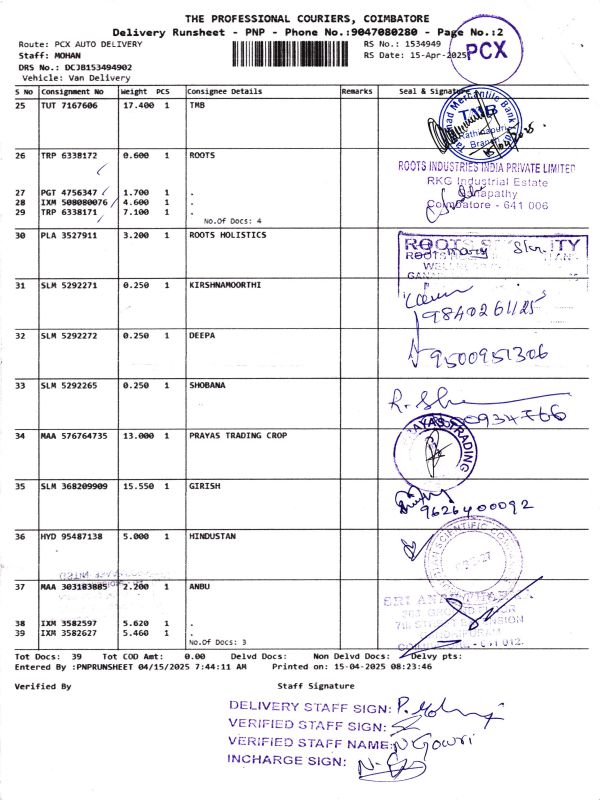 THE PROFESSIONAL COURIERS, COIMBATORE
Delivery Runsheet - PNP - Phone No.:9047080280 - Page No.:2
Route: PCX AUTO DELIVERY
RS No.: 1534949
Staff: MOHAN
RS Date: 15-Apr-2025
PCX
DRS No.: DCJB153494902
Vehicle: Van Delivery
S No Consignment No Weight PCS Consignee Details Remarks Seal & Signature
25 TUT 7167606 17.400 1 TMB
Tamilnad Mercantile Bank
TMB
Branch
26 TRP 6338172 0.600 1 ROOTS
ROOTS INDUSTRIES INDIA PRIVATE LIMITED
RKG Industrial Estate
Ganapathy
Coimbatore - 641 006
27 PGT 4756347 1.700 1 .
28 IXM 508080076 4.600 1 .
29 TRP 6338171 7.100 1 .
No.Of Docs: 4
30 PLA 3527911 3.200 1 ROOTS HOLISTICS
ROOTS SECURITY
31 SLM 5292271 0.250 1 KIRSHNAMOORTHI
9840261125
32 SLM 5292272 0.250 1 DEEPA
9500951306
33 SLM 5292265 0.250 1 SHOBANA
34 MAA 576764735 13.000 1 PRAYAS TRADING CROP
PRAYAS TRADING
35 SLM 368209909 15.550 1 GIRISH
9626400092
36 HYD 95487138 5.000 1 HINDUSTAN
SCIENTIFIC COMPANY
37 MAA 303183885 2.200 1 ANBU
38 IXM 3582597 5.620 1 .
39 IXM 3582627 5.460 1 .
No.Of Docs: 3
Tot Docs: 39 Tot COD Amt: 0.00 Delvd Docs: Non Delvd Docs: Delvy pts:
Entered By :PNPRUNSHEET 04/15/2025 7:44:11 AM Printed on: 15-04-2025 08:23:46
Verified By Staff Signature
DELIVERY STAFF SIGN:
VERIFIED STAFF SIGN:
VERIFIED STAFF NAME: N Gowri
INCHARGE SIGN: